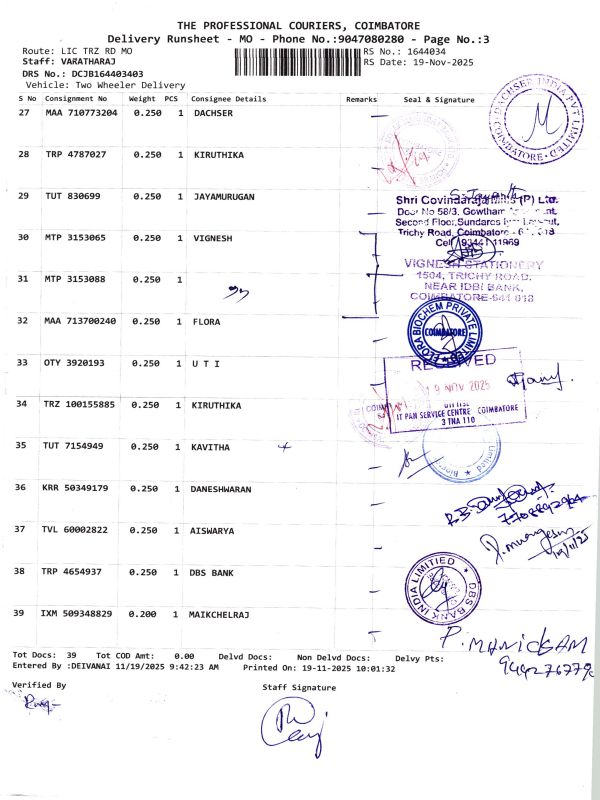 THE PROFESSIONAL COURIERS, COIMBATORE
Delivery Runsheet - MO - Phone No.:9047080280 - Page No.:3
Route: LIC TRZ RD MO
RS No.: 1644034
Staff: VARATHARAJ
RS Date: 19-Nov-2025
DRS No.: DCJB164403403
Vehicle: Two Wheeler Delivery
S No Consignment No Weight PCS Consignee Details Remarks Seal & Signature
27 MAA 710773204 0.250 1 DACHSER
DACHSER INDIA PVT LIMITED
COIMBATORE
28 TRP 4787027 0.250 1 KIRUTHIKA
29 TUT 830699 0.250 1 JAYAMURUGAN
Door No 58/3, Gowtham
Trichy Road, Coimbatore
30 MTP 3153065 0.250 1 VIGNESH
VIGNESH STATIONERY
1504, TRICHY ROAD,
NEAR IDBI BANK,
COIMBATORE-641 018
31 MTP 3153088 0.250 1
32 MAA 713700240 0.250 1 FLORA
FLORA BIOCHEM PRIVATE LIMITED
COIMBATORE
33 OTY 3920193 0.250 1 U T I
RECEIVED
19 NOV 2025
IT PAN SERVICE CENTRE COIMBATORE
3 TNA 110
34 TRZ 100155885 0.250 1 KIRUTHIKA
35 TUT 7154949 0.250 1 KAVITHA
36 KRR 50349179 0.250 1 DANESHWARAN
37 TVL 60002822 0.250 1 AISWARYA
19/11/25
38 TRP 4654937 0.250 1 DBS BANK
DBS BANK INDIA LIMITED
39 IXM 509348829 0.200 1 MAIKCHELRAJ
P. MANICKAM
Tot Docs: 39 Tot COD Amt: 0.00 Delvd Docs: Non Delvd Docs: Delvy Pts:
Entered By :DEIVANAI 11/19/2025 9:42:23 AM Printed On: 19-11-2025 10:01:32
Verified By
Staff Signature